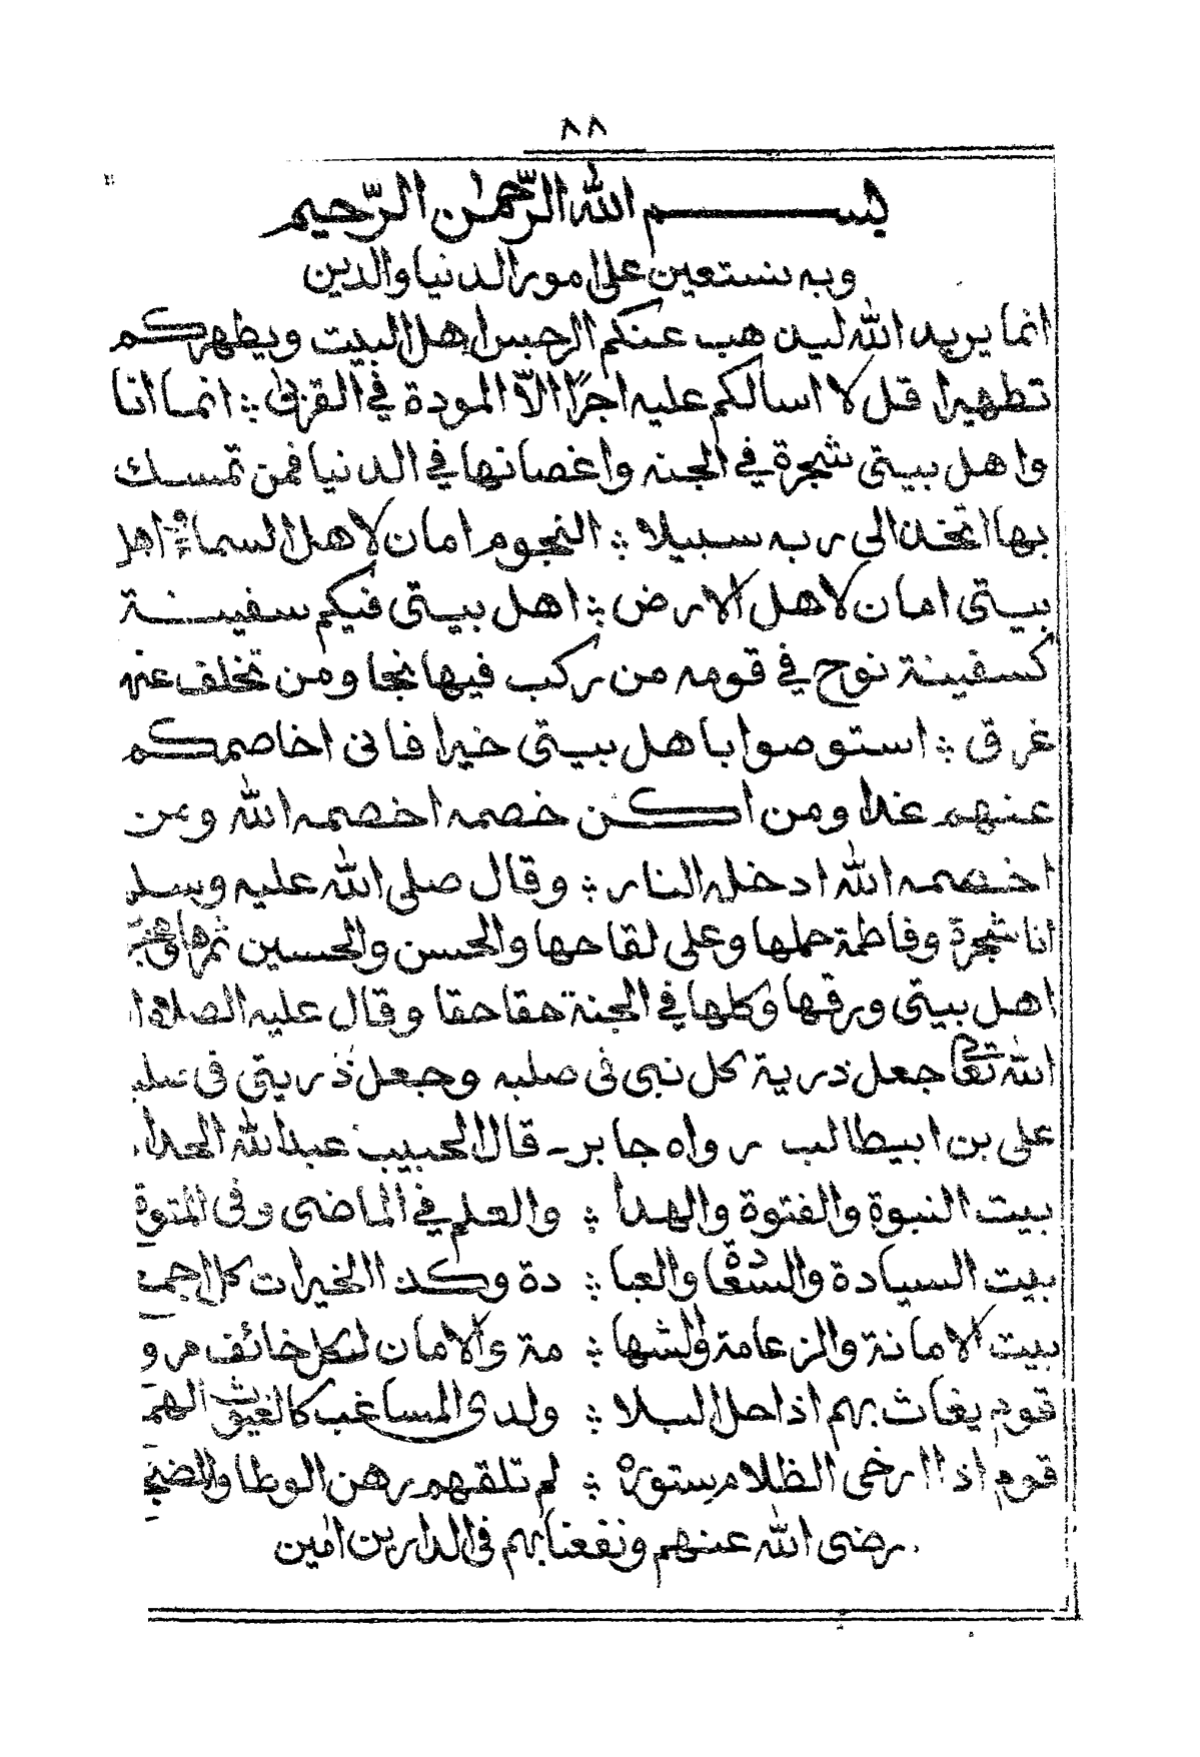 ٨٨
بســـــــم الله الرّحمٰن الرّحيم
وبه نستعين على امور الدنيا والدين
انما يريد الله ليذهب عنكم الرجس اهل البيت ويطهركم
تطهيرا قل لا اسالكم عليه اجرًا الاّ المودة في القربى ؛ انما انا
واهل بيتي شجرة في الجنه واغصانها في الدنيا فمن تمسك
بها اتخذ الى ربه سبيلا ؛ النجوم امان لاهل السماء واهل
بيتى امان لاهل الارض ؛ اهل بيتى فيكم سفينة
كسفينة نوح في قومه من ركب فيها نجا ومن تخلف عنه
غرق ؛ استوصوا باهل بيتى خيرا فانى اخاصمكم
عنهم غدا ومن اكن خصمه اخصمه الله ومن
اخصمه الله ادخله النار ؛ وقال صلى الله عليه وسلم
انا شجرة وفاطمة حملها وعلى لقاحها والحسن والحسين ثمرها
اهل بيتى ورقها وكلها في الجنة حقا حقا وقال عليه الصلاة
الله تعا جعل ذرية كل نبى فى صلبه وجعل ذريتى فى صلب
على بن ابيطالب رواه جابر ـ قال الحبيب عبد الله الحداد
بيت النبوة والفتوة والهدا ؛ والعلم في الماضى وفى المتوقع
بيت السيادة والسعادة والعبا ؛ دة وكذا الخيرات كل اجمع
بيت الامانة والزعامة والشها ؛ مة والامان لكل خائف مرو
قوم يغاث بهم اذا حل البلا ؛ ولدى المساغب كالغيوث الهمع
قوم اذا ارخى الظلام ستوره ؛ لم تلقهم رهن الوطا والمضجع
رضى الله عنهم ونفعنا بهم فى الدارين امين